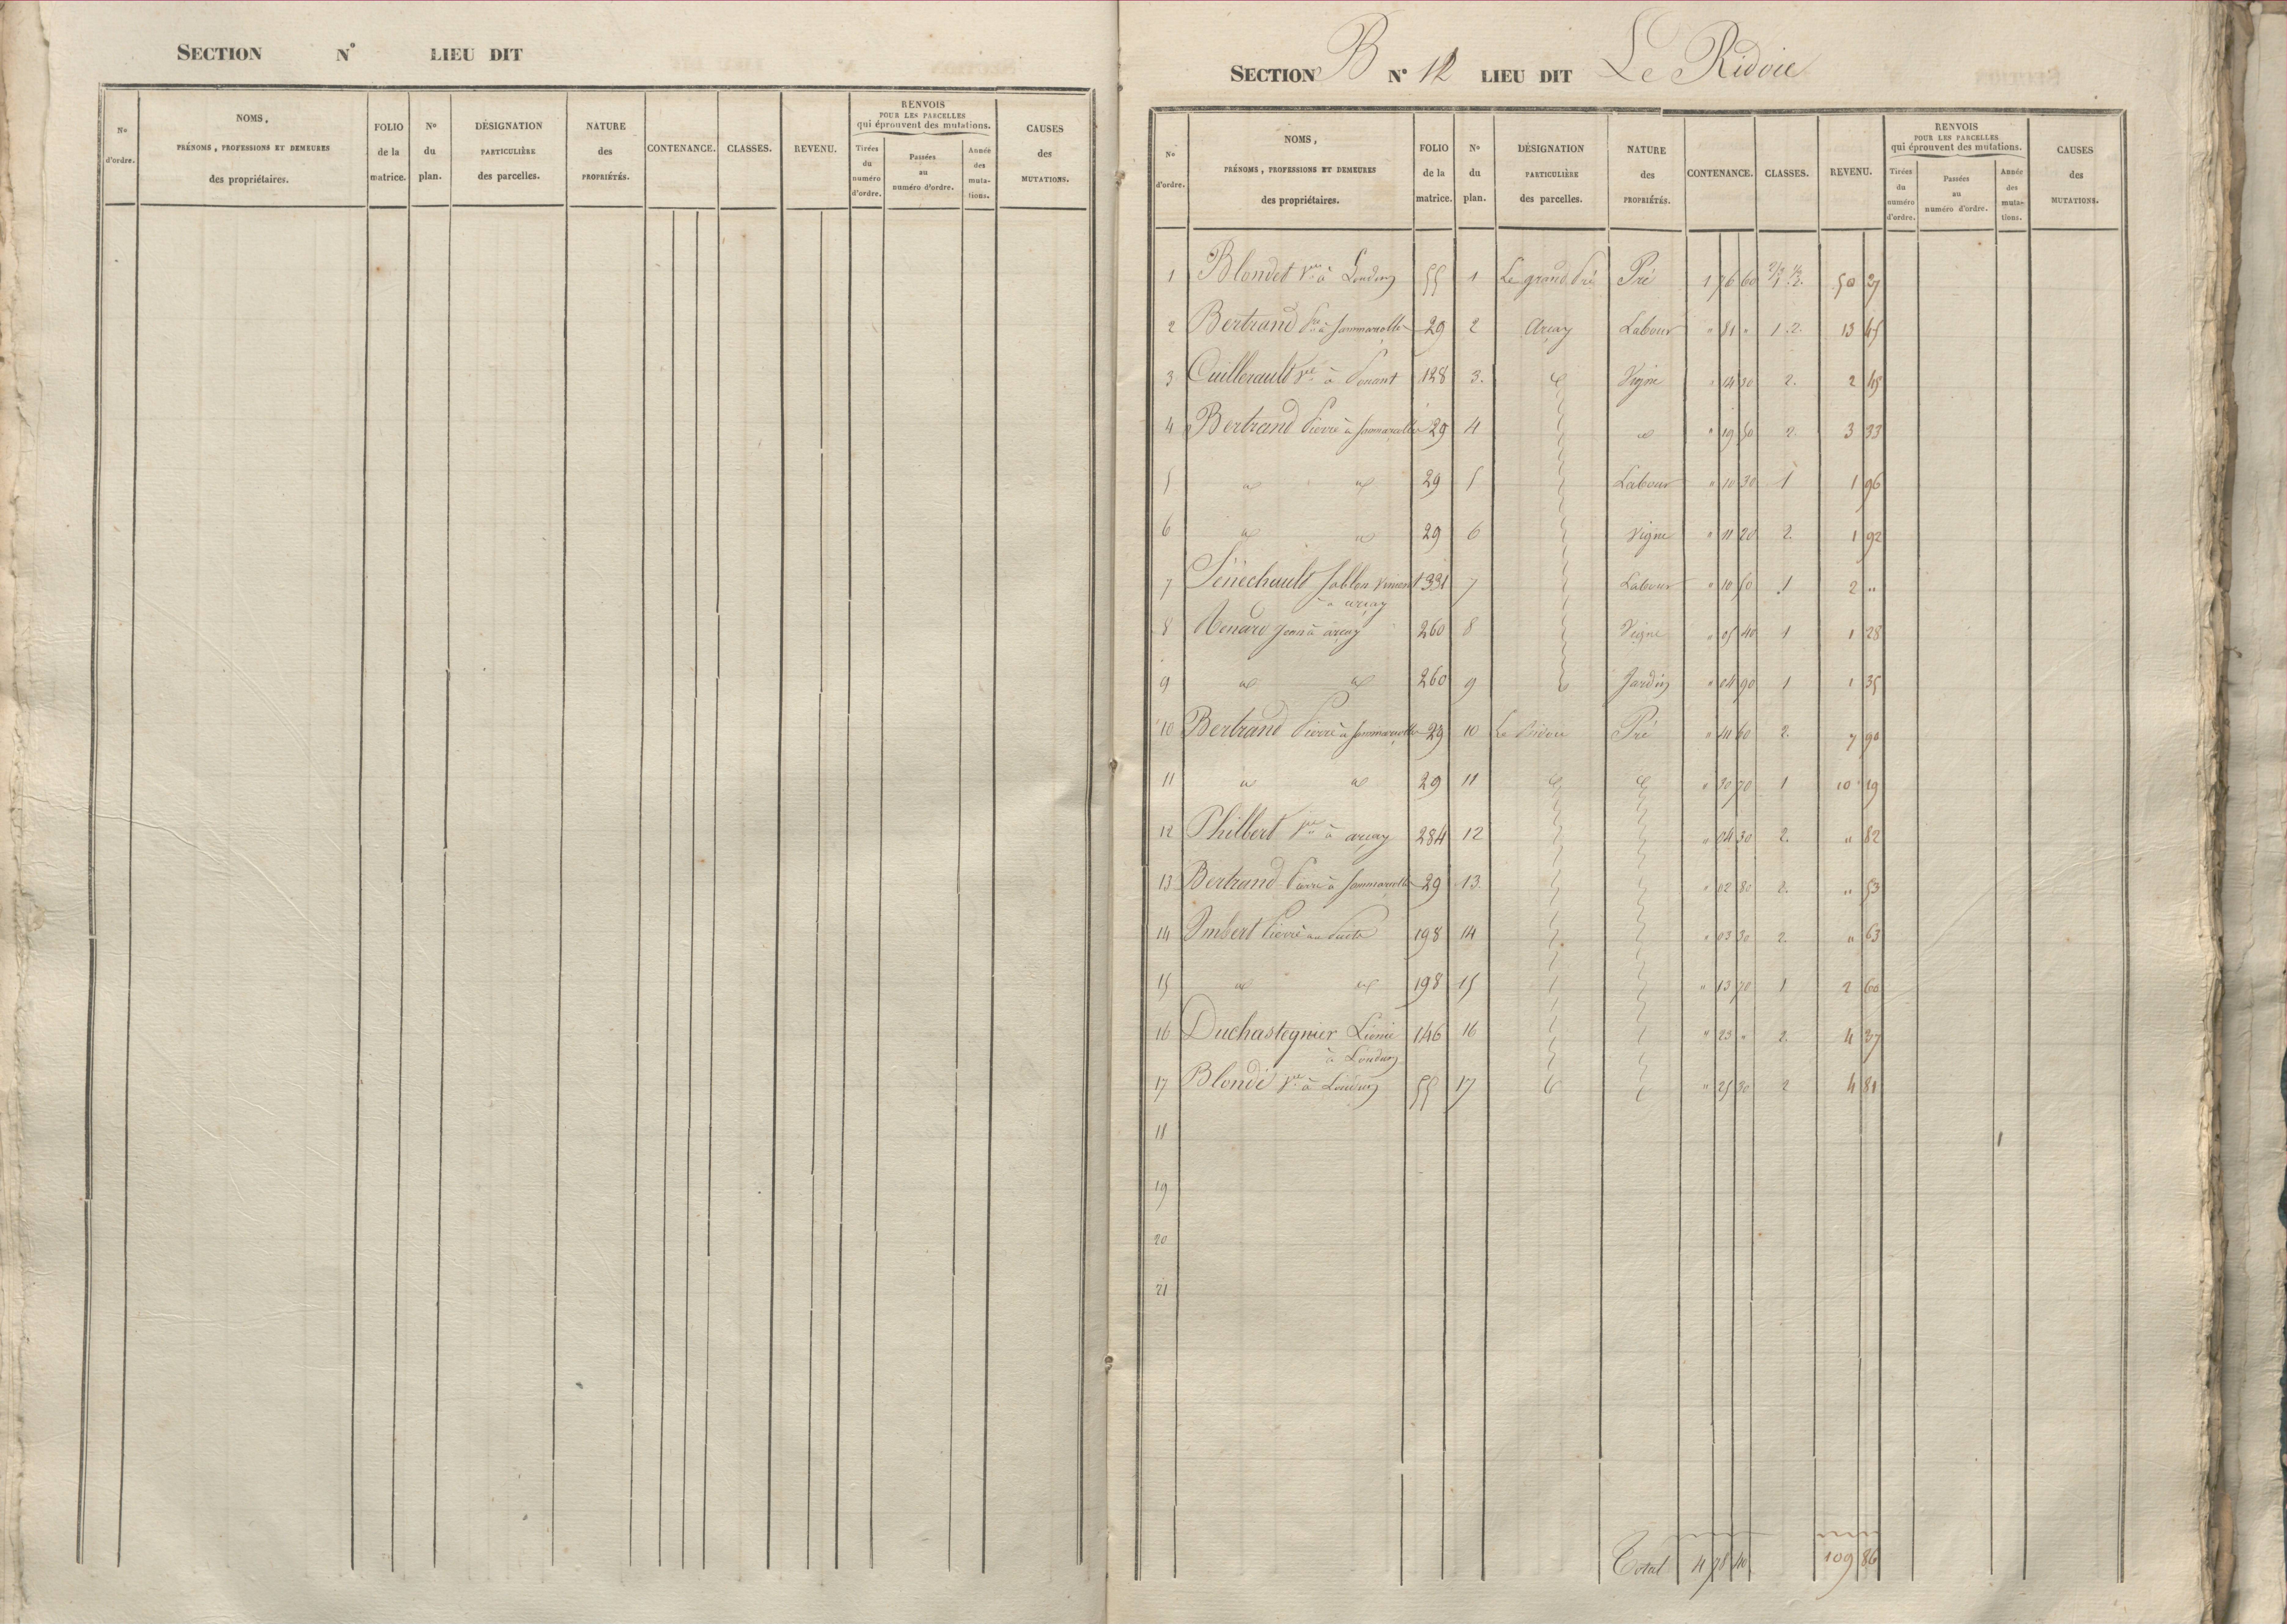 SECTION N° LIEU DIT
N° d'ordre. NOMS, PRÉNOMS, PROFESSIONS ET DEMEURES des propriétaires. FOLIO de la matrice. N° du plan. DÉSIGNATION PARTICULIÈRE des parcelles. NATURE des PROPRIÉTÉS. CONTENANCE. CLASSES. REVENU. RENVOIS POUR LES PARCELLES qui éprouvent des mutations. Tirées du numéro d'ordre. Passées au numéro d'ordre. Année des mutations. CAUSES des MUTATIONS.
SECTION B N° 12 LIEU DIT Le Ridoie
N° d'ordre. NOMS, PRÉNOMS, PROFESSIONS ET DEMEURES des propriétaires. FOLIO de la matrice. N° du plan. DÉSIGNATION PARTICULIÈRE des parcelles. NATURE des PROPRIÉTÉS. CONTENANCE. CLASSES. REVENU. RENVOIS POUR LES PARCELLES qui éprouvent des mutations. Tirées du numéro d'ordre. Passées au numéro d'ordre. Année des mutations. CAUSES des MUTATIONS.
1 Blondet Vve à Loudun 55 1 Le grand Pré Pré 1 76 60 50 27
2 Bertrand Pre à Sammarcolles 29 2 Arçay Labour " 81 " 1.2. 13 45
3 Cuillerault Vve à 128 3. Vigne " 14 30 2. 2 45
4 Bertrand Pierre à Sammarcolles 29 4 " 19 50 2. 3 33
5 29 5 Labour " 10 30 1 1 96
6 29 6 Vigne " 11 20 2. 1 92
7 Sénéchault Sablon Vincent 331 7 Labour " 10 50 1 2 "
à arçay
8 Renard Jean à arçay 260 8 Vigne " 05 40 1 1 28
9 260 9 Jardin " 04 90 1 1 35
10 Bertrand Pierre à Sammarcolles 29 10 Le Ridoie Pré " 41 60 2. 7 90
11 29 11 " 30 70 1 10 19
12 Philbert Vve à arçay 284 12 " 04 30 2. " 82
13 Bertrand Pierre à Sammarcolles 29 13. " 02 80 2. " 53
14 Imbert Pierre au 198 14 " 03 30 2. " 63
15 198 15 " 13 70 1 2 60
16 Duchastegnier Léonie 146 16 " 23 " 2. 4 37
à Loudun
17 Blondé Vve à Loudun 55 17 " 25 30 2 4 81
18
19
20
21
Total 4 78 40 109 86